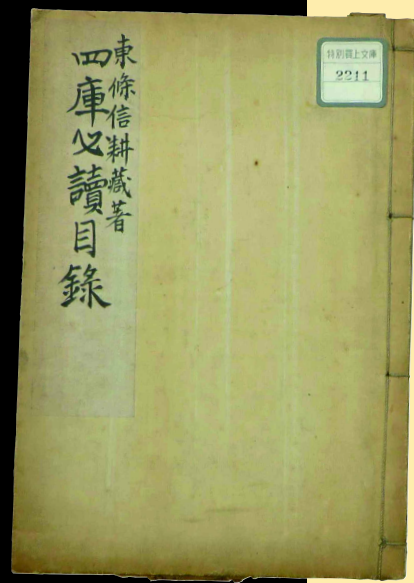 東條信耕藏著
四庫必讀目錄
特別買上文庫
2211